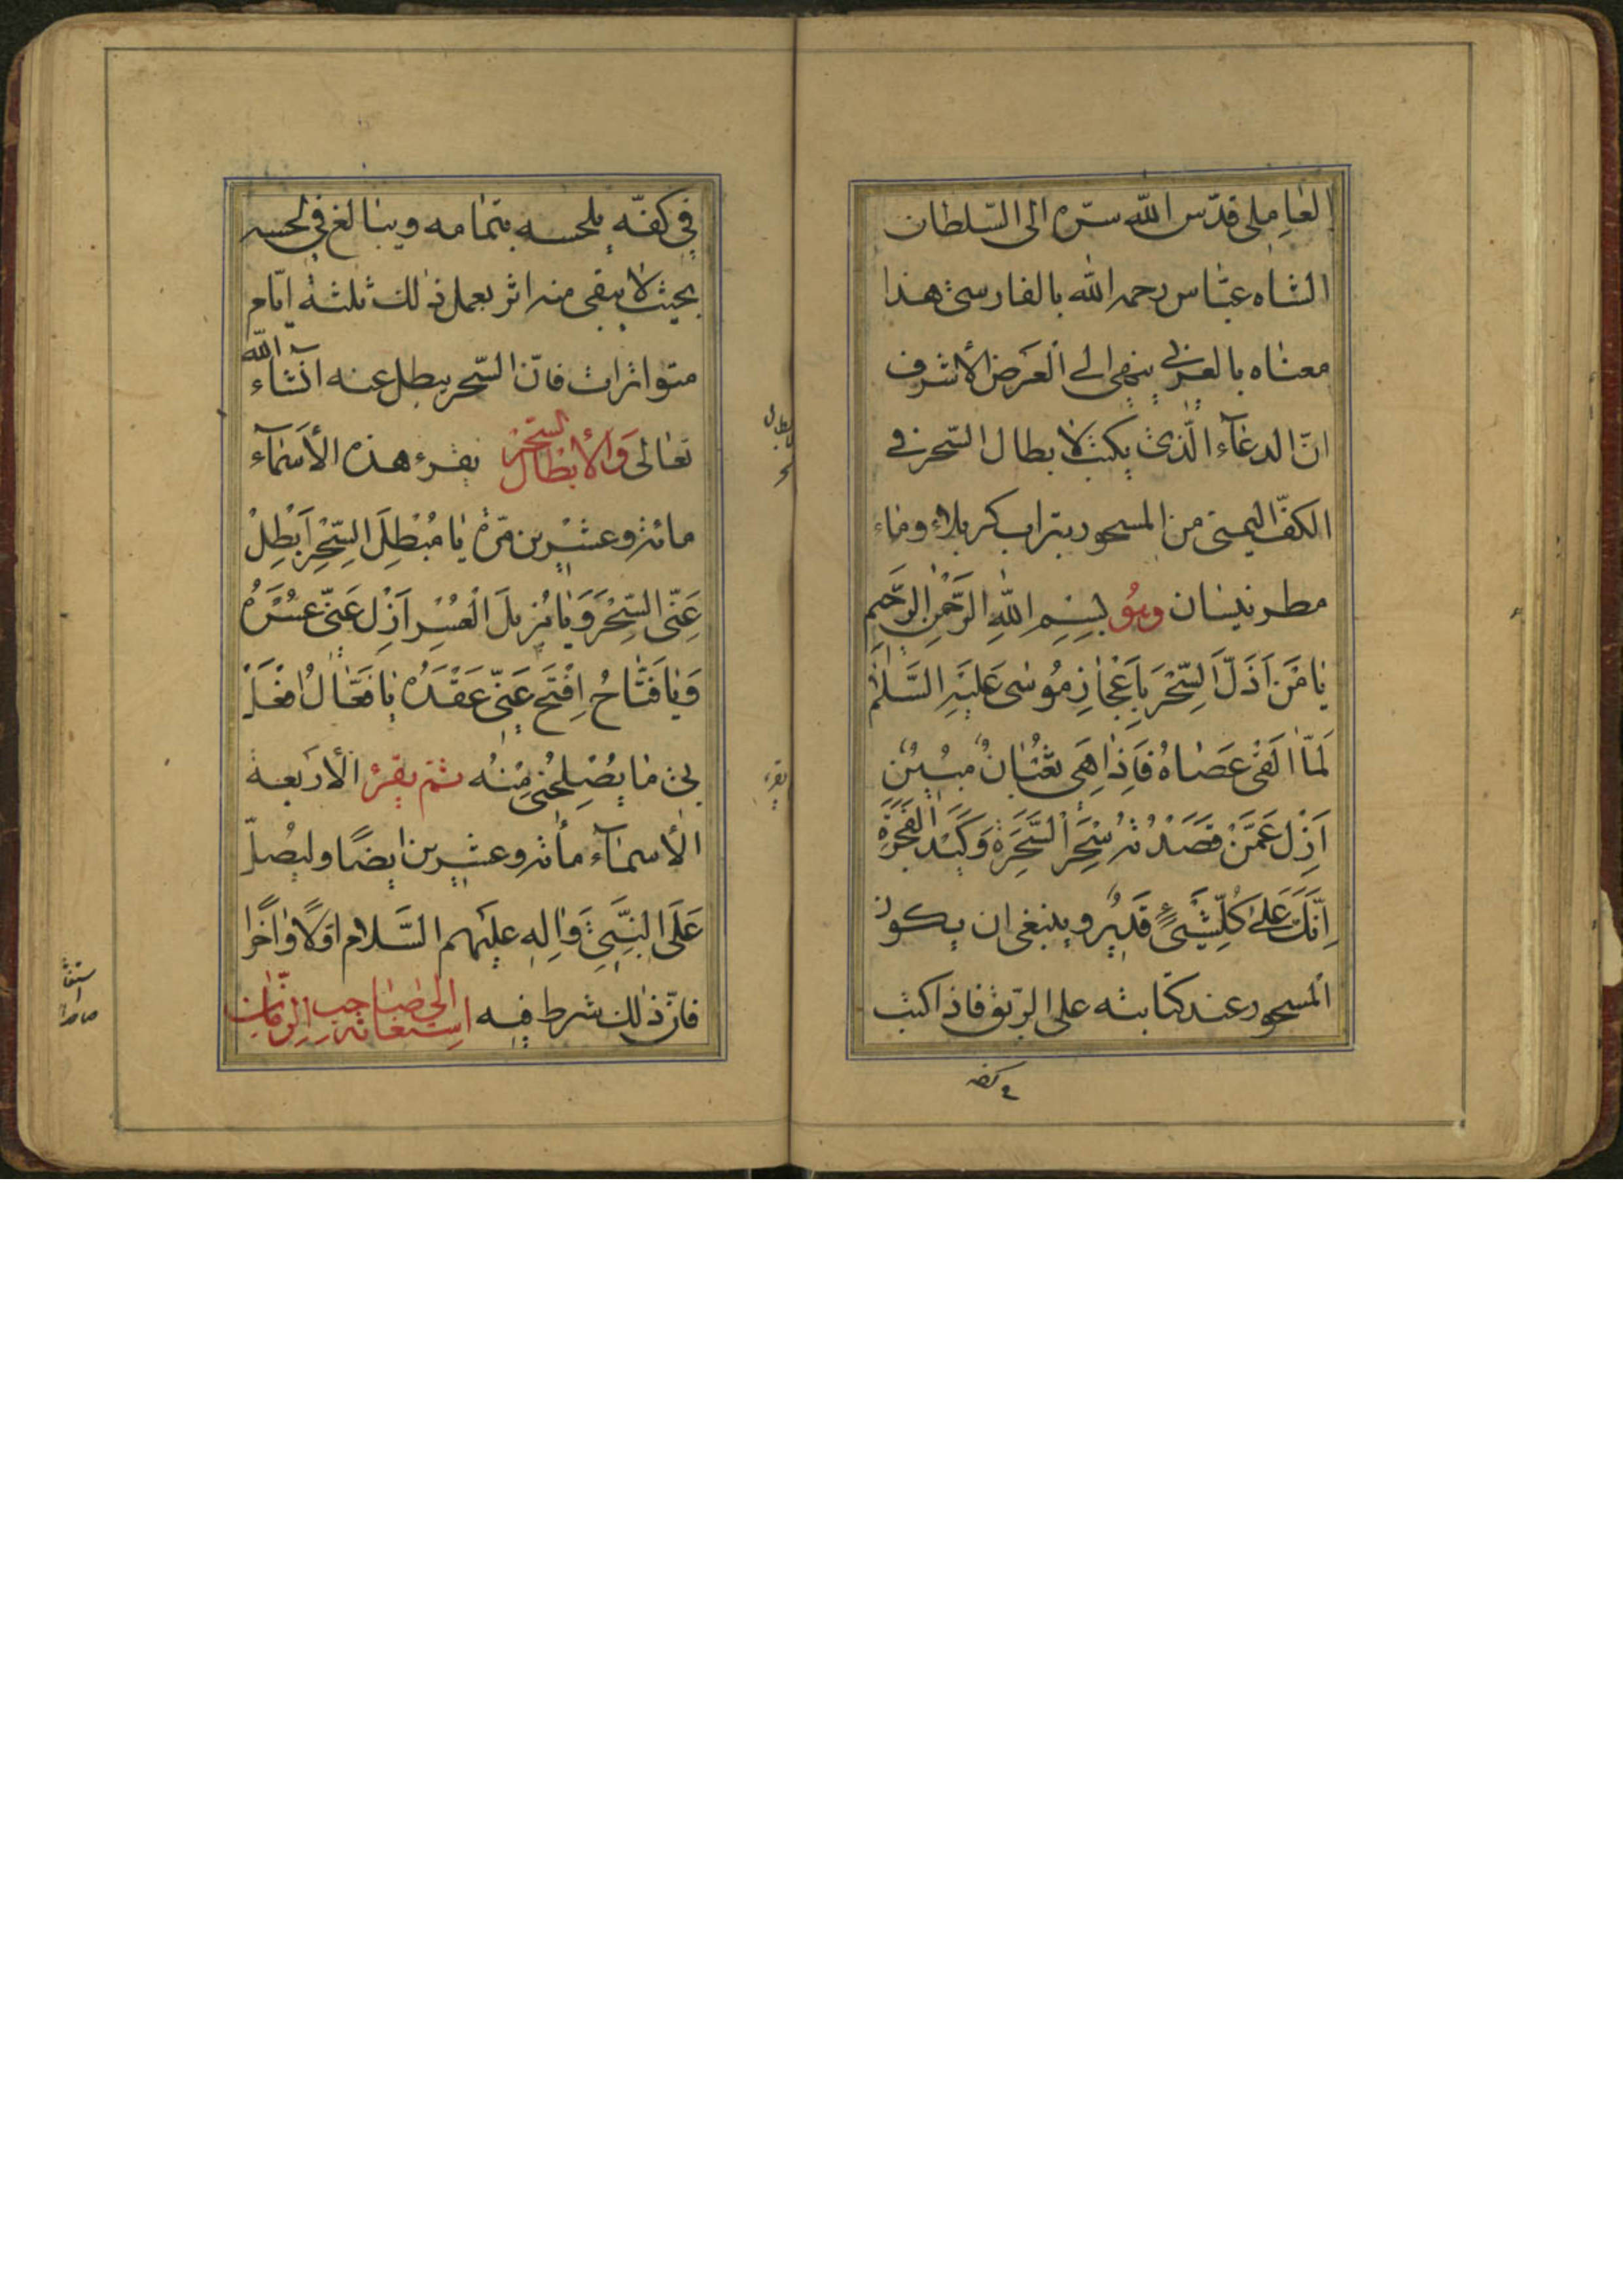 العاملى قدّس الله سرّه الى السّلطان
الشاه عبّاس رحمه الله بالفارسى هذا
معناه بالعربي ينهى الى العرض الأشرف
انّ الدعآء الّذى يكتب لابطال السّحر في
الكفّ اليمنى من المسحور بتراب كربلاء وماء
مطر نيسان وهو بِسْمِ اللهِ الرَّحْمنِ الرَّحيمِ
يا مَنْ اَذَلَّ السِّحْرَ بِاَعْجازِ مُوسٰى عَلَيْهِ السَّلامُ
لَمّا اَلقى عَصاهُ فَاِذا هِيَ ثُعْبانٌ مُبينٌ
اَزِلْ عَمَّنْ قَصَدْتُهُ سِحْرَ السَّحَرَةِ وَكَيْدَ الْفَجَرَةِ
اِنَّكَ عَلى كُلِّ شَيْءٍ قَديرٌ وينبغى ان يكون
المسحور عند كتابته على الرّيق فاذا كتب
في كفّه
في كفّه يلحسه بتمامه ويبالغ في لحسه
بحيث لا يبقى منه اثر يعمل ذلك ثلثة ايّام
متواترات فانّ السّحر يبطل عنه انشآء الله
تعالى وَلأبطال السّحر يقرء هذه الأسمآء
مائة وعشرين مرّة يا مُبْطِلَ السِّحْرِ اَبْطِلْ
عَنّى السِّحْرَ وَيا مُزيلَ الْعُسْرِ اَزِلْ عَنّى عُسْرَهُ
وَيا فَتّاحُ اِفْتَحْ عَنّى عَقْدَهُ يا فَعّالُ افْعَلْ
بى ما يُصْلِحُنى مِنْهُ ثمّ يقرء الأربعة
الأسمآء مأئة وعشرين ايضًا وليُصلّ
عَلَى النَّبِيِّ وَالِهِ عليهم السَّلام اوّلًا واٰخرًا
فانّ ذلك شرط فيه استغاثة الى صاحب الزمان
لابطال
يقرء